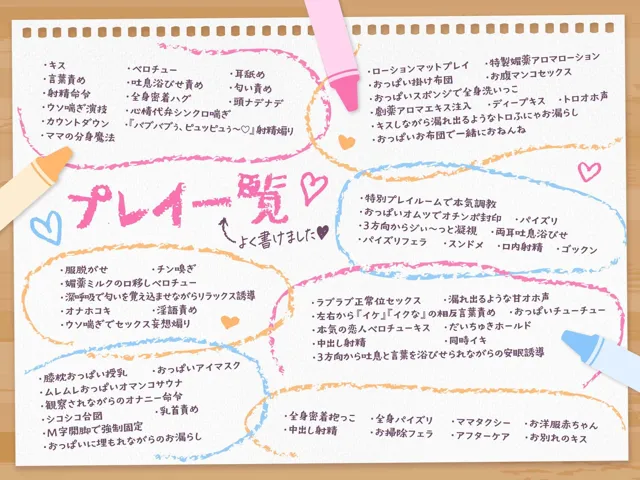 ・キス
・言葉責め
・射精命令
・ウソ喘ぎ演技
・カウントダウン
・ママの分身魔法
・ベロチュー
・吐息浴びせ責め
・全身密着ハグ
・心情代弁シンクロ喘ぎ
・『バブバブぅ、ピュッピュぅ〜♡』射精煽り
・耳舐め
・匂い責め
・頭ナデナデ
・ローションマットプレイ ・特製媚薬アロマローション
・おっぱい掛け布団 ・お腹マンコセックス
・おっぱいスポンジで全身洗いっこ
・劇薬アロマエキス注入 ・ディープキス ・トロオホ声
・キスしながら漏れ出るようなトロふにゃお漏らし
・おっぱいお布団で一緒におねんね
プレイ一覧
よく書けました♥
・特別プレイルームで本気調教
・おっぱいオムツでオチンポ封印 ・パイズリ
・3方向からじぃ〜っと凝視 ・両耳吐息浴びせ
・パイズリフェラ ・スンドメ ・口内射精 ・ゴックン
・服脱がせ ・チン嗅ぎ
・媚薬ミルクの口移しベロチュー
・深呼吸で匂いを覚え込ませながらリラックス誘導
・オナホコキ ・淫語責め
・ウソ喘ぎでセックス妄想煽り
・ラブラブ正常位セックス ・漏れ出るような甘オホ声
・左右から『イケ』『イクな』の相反言葉責め ・おっぱいチューチュー
・本気の恋人ベロチューキス ・だいちゅきホールド
・中出し射精 ・同時イキ
・3方向から吐息と言葉を浴びせられながらの安眠誘導
・膝枕おっぱい授乳 ・おっぱいアイマスク
・ムレムレおっぱいオマンコサウナ
・観察されながらのオナニー命令
・シコシコ合図 ・乳首責め
・M字開脚で強制固定
・おっぱいに埋もれながらのお漏らし
・全身密着抱っこ ・全身パイズリ ・ママタクシー ・お洋服赤ちゃん
・中出し射精 ・お掃除フェラ ・アフターケア ・お別れのキス